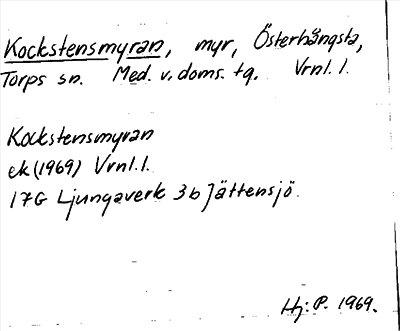 Kockstensmyran, myr, Österhångsta,
Torps sn. Med. v. doms. tg. Vrnl. l.
Kockstensmyran
ek (1969) Vrnl. l.
17G Ljungaverk 3b Jättensjö.
Hj: P. 1969.